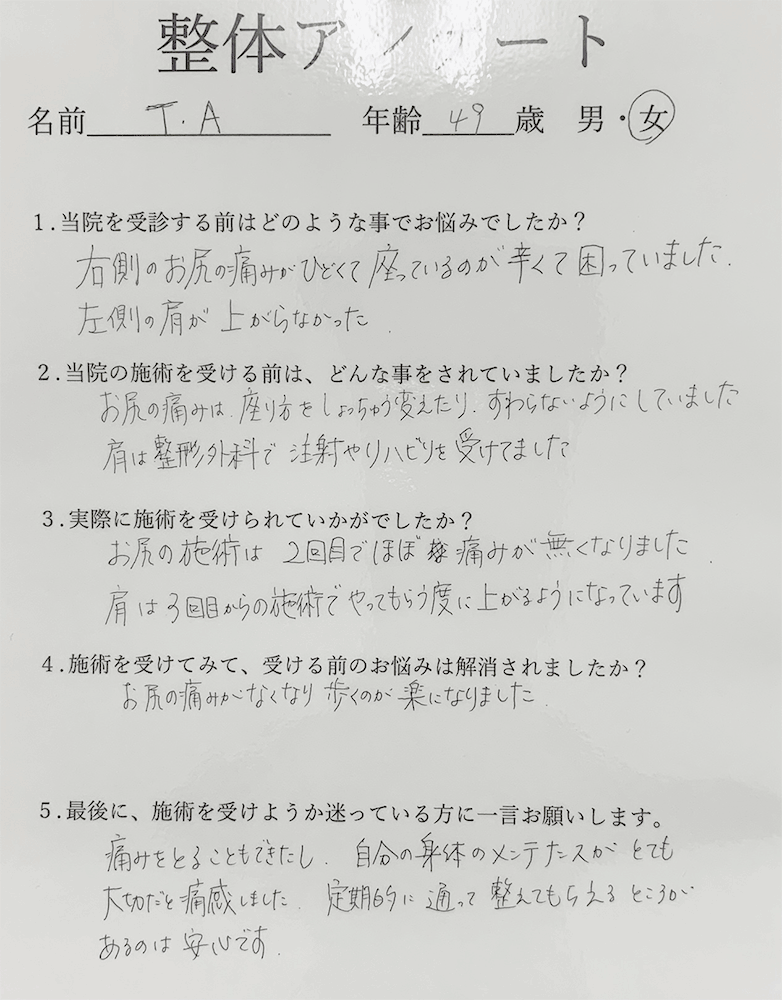 整体アンケート
名前 T.A 年齢 49 歳 男・女
1.当院を受診する前はどのような事でお悩みでしたか?
右側のお尻の痛みがひどくて座っているのが辛くて困っていました.
左側の肩が上がらなかった.
2.当院の施術を受ける前は、どんな事をされていましたか?
お尻の痛みは.座り方をしょっちゅう変えたり.すわらないようにしていました
肩は整形外科で注射やリハビリを受けてました
3.実際に施術を受けられていかがでしたか?
お尻の施術は2回目でほぼ痛みが無くなりました.
肩は3回目からの施術でやってもらう度に上がるようになっています
4.施術を受けてみて、受ける前のお悩みは解消されましたか?
お尻の痛みがなくなり歩くのが楽になりました.
5.最後に、施術を受けようか迷っている方に一言お願いします。
痛みをとることもできたし.自分の身体のメンテナンスがとても
大切だと痛感しました.定期的に通って整えてもらえるところが
あるのは安心です.